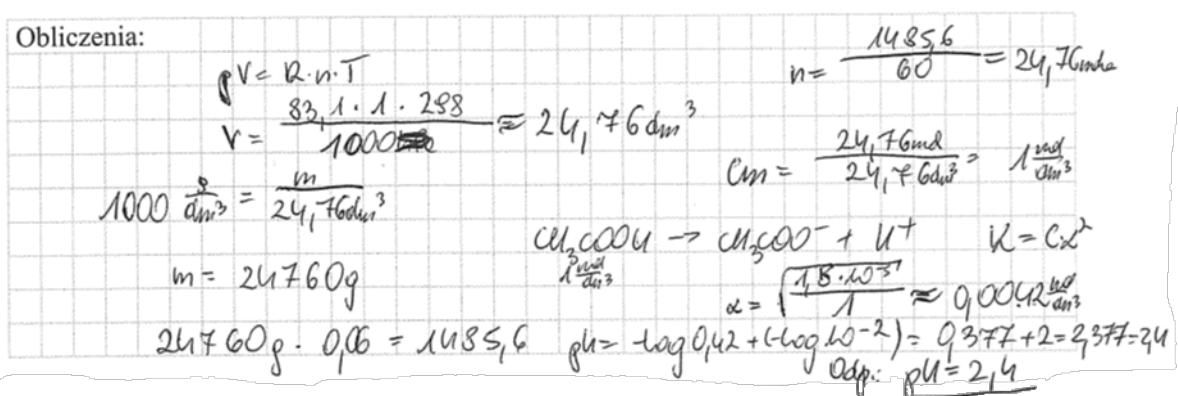 Obliczenia:
pV = R·n·T
V = \frac{83,1 · 1 · 298}{1000} ≈ 24,76 dm³
n = \frac{1485,6}{60} = 24,76 mola
1000 \frac{g}{dm³} = \frac{m}{24,76 dm³}
Cm = \frac{24,76 mol}{24,76 dm³} = 1 \frac{mol}{dm³}
m = 24760 g
CH₃COOH → CH₃COO⁻ + H⁺ K = Cα²
1 \frac{mol}{dm³}
α = \sqrt{\frac{1,8·10⁻⁵}{1}} ≈ 0,0042 \frac{mol}{dm³}
24760 g · 0,06 = 1485,6 pH = -log 0,42 + (-log 10⁻²) = 0,377 + 2 = 2,377 = 2,4
Odp.: pH = 2,4